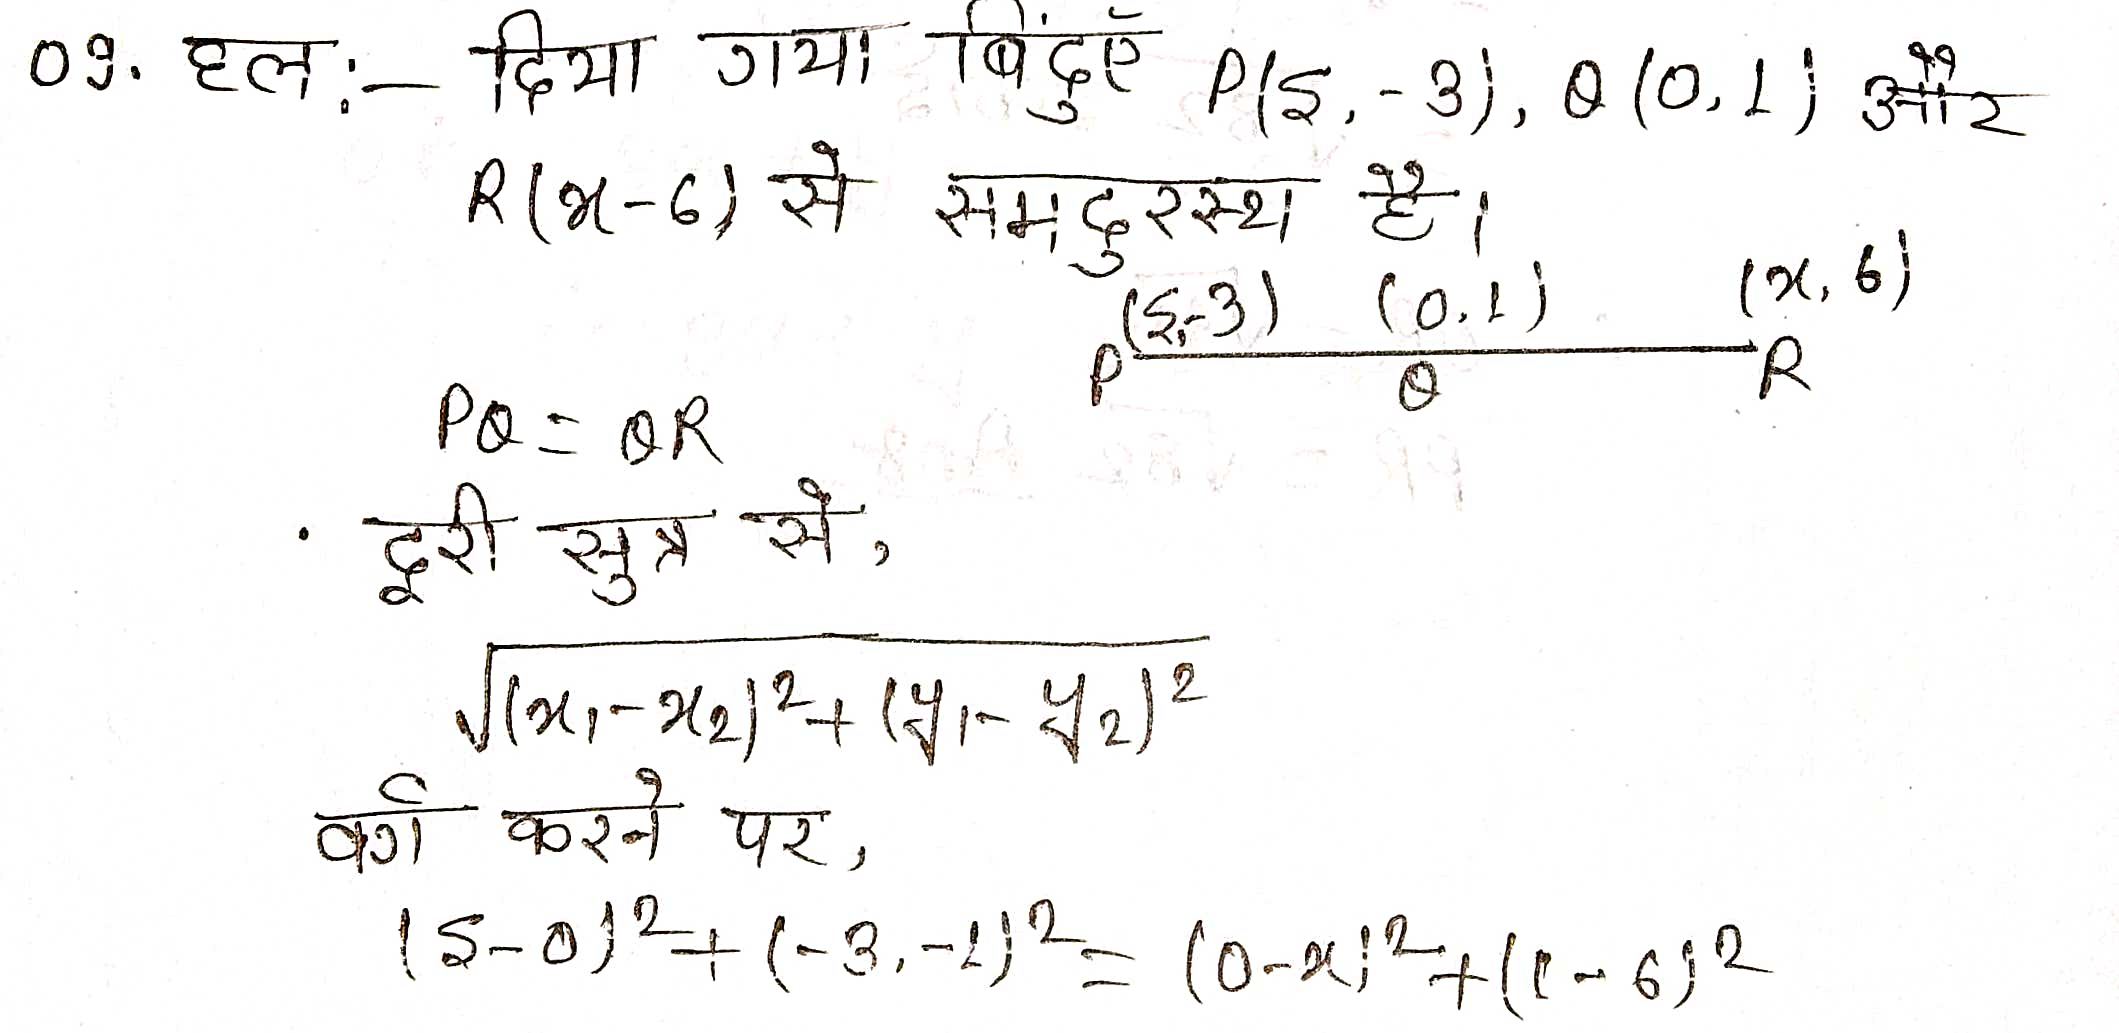 09. हल:- दिया गया बिंदुएँ P(5, -3), Q(0, 1) और
R(x-6) से समदुरस्थ है।
(5,-3) (0,1) (x, 6)
P Q R
PQ = QR
· दूरी सुत्र से,
√(x₁-x₂)²+(y₁-y₂)²
वर्ग करने पर,
(5-0)²+(-3,-1)² = (0-x)²+(1-6)²